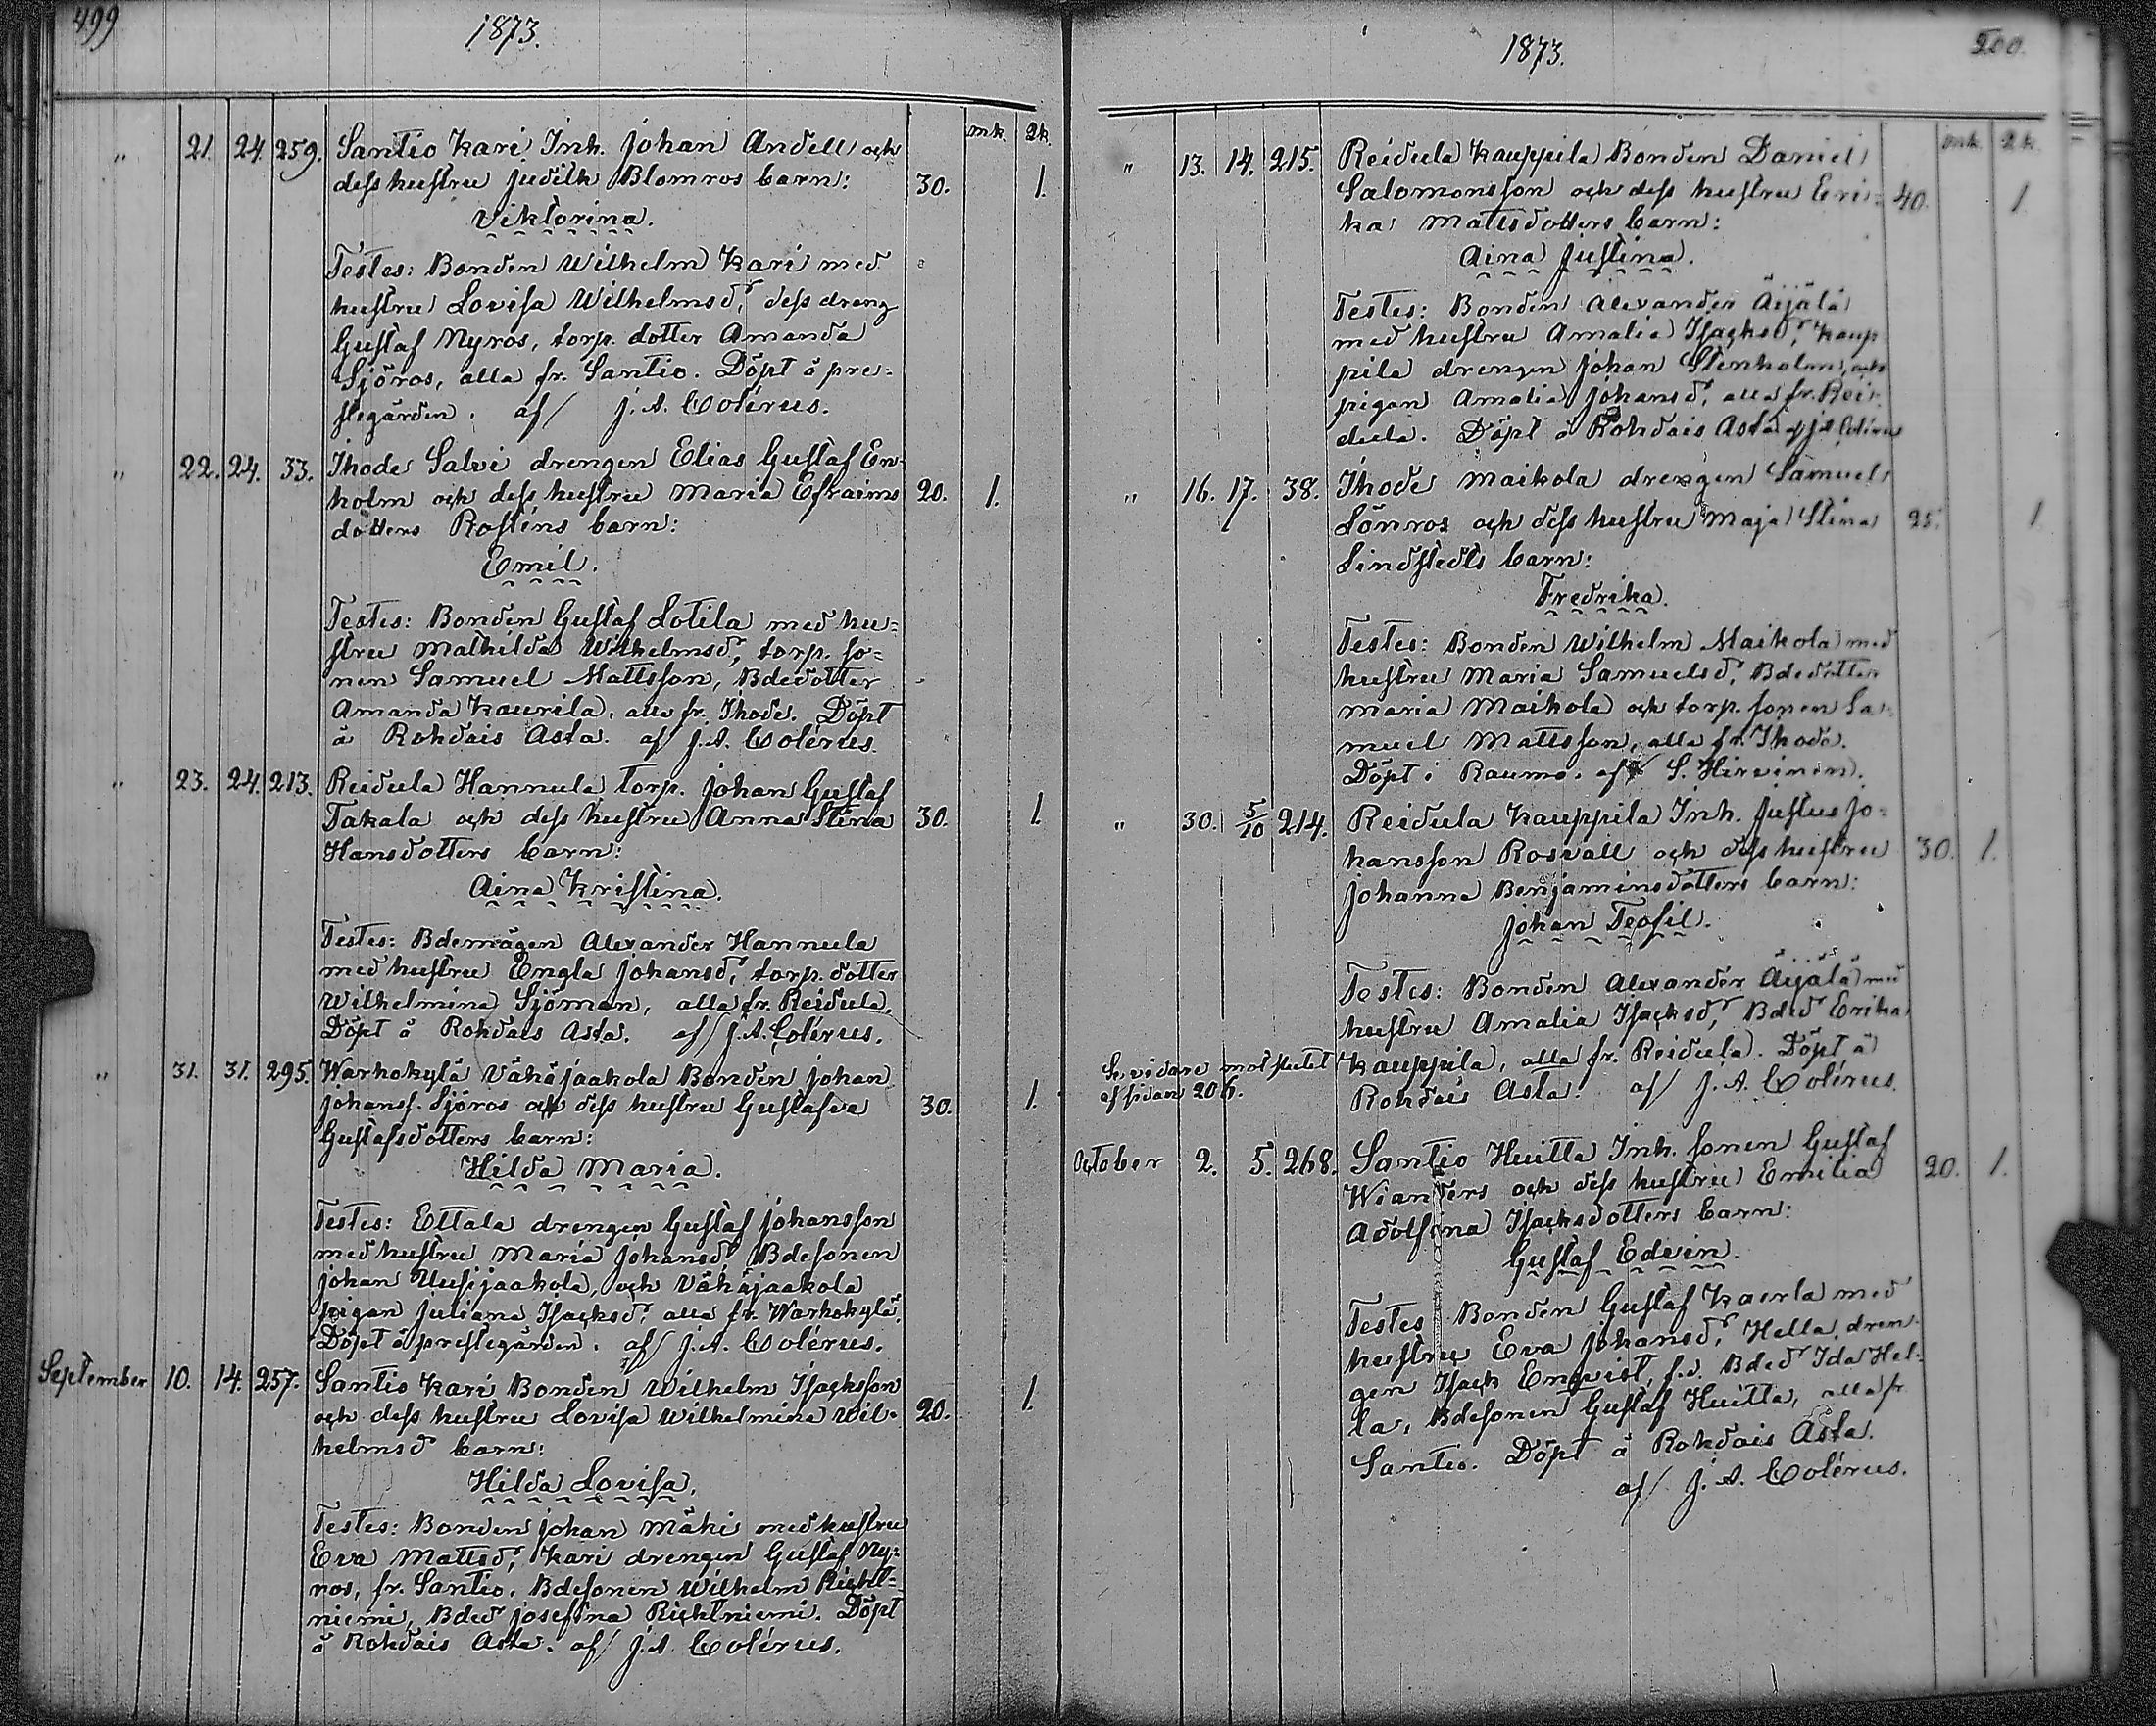 499
1873.
mk. 2k.
„ 21. 24. 259. Santio Kari Inh. Johan Andell och
dess hustru Judith Blomros barn: 30. 1.
Viktorina.
Testes: Bonden Wilhelm Kari med
hustru Lovisa Wilhelmsd:r dess dreng
Gustaf Nyros, torp. dotter Amanda
Sjöros, alla fr. Santio. Döpt å pre=
stegården. af/ J. A. Colérus.
„ 22. 24. 33. Ihode Salvi drengen Elias Gustaf En=
holm och dess hustru Maria Efraims 20. 1.
dotters Rosténs barn:
Emil.
Testes: Bonden Gustaf Lotila med hu=
stru Mathilda Wilhelmsd:r, torp. so=
nen Samuel Mattsson, Bdedotter
Amanda Kaurila, alla fr. Ihode. Döpt
å Rohdais Asta. af J. A. Colérus.
„ 23. 24. 213. Reidula Hannula torp. Johan Gustaf
Takala och dess hustru Anna Stina 30. 1.
Hansdotters barn:
Aina Kristina.
Testes: Bdemågen Alexander Hannula
med hustru Engla Johansd:r, torp. dotter
Wilhelmina Sjöman, alla fr. Reidula.
Döpt å Rohdais Asta. af/ J. A. Colérus.
„ 31. 31. 295. Warhokylä Vähäjaakola Bonden Johan
Johanss. Sjöros och dess hustru Gustafva 30. 1.
Gustafsdotters barn:
Hilda Maria.
Testes: Ettala drengen Gustaf Johansson
med hustru Maria Johansd:r, Bdesonen
Johan Uusijaakola, och Vähäjaakola
pigan Juliana Isacksd:r alla fr. Warhokylä.
Döpt å prestegården. af/ J. A. Colérus.
September 10. 14. 257. Santio Kari Bonden Wilhelm Isacksson
och dess hustru Lovisa Wilhelmina Wil= 20. 1.
helmsd barn:
Hilda Lovisa.
Testes: Bonden Johan Mäki med hustru
Eva Mattsd:r, Kari drengen Gustaf Ny=
ros, fr. Santio, Bdesonen Wilhelm Richt=
niemi, Bded Josefina Richtniemi. Döpt
å Rohdais Asta. af/ J. A. Colérus.
1873.
500.
mk. 2k.
„ 13. 14. 215. Reidula Kauppila Bonden Daniel
Salomonsson och dess hustru Eri= 40. 1
ka Mattsdotters barn:
Aina Justina.
Testes: Bonden Alexander Äijälä
med hustru Amalia Isacksd:r, Kaup
pila drengen Johan Stenholm, och
pigan Amalia Johansd:r, alla fr. Rei=
dula. Döpt å Rohdais Asta af J A Colérus
„ 16. 17. 38. Ihode Maikola drengen Samuel
Lönros och dess hustru Maja Stina 25. 1
Lindstedts barn:
Fredrika.
Testes: Bonden Wilhelm Maikola med
hustru Maria Samuelsd:r, Bdedotter
Maria Maikola och torp. sonen Sa=
muel Mattsson, alla fr. Ihode.
Döpt i Raumo. af/ S. Hirvinen.
„ 30. 5/10 214. Reidula Kauppila Inh. Justus Jo=
hansson Rosvall och dess hustru 30. 1.
Johanna Benjaminsdotters barn:
Johan Teofil.
Testes: Bonden Alexander Äijälä med
hustru Amalia Isacksd:r, Bded Erika
Kauppila, alla fr. Reidula. Döpt å
Rohdais Asta. af/ J. A. Colérus.
Se vidare mot slutet
af sidan 206.
October 2. 5. 268. Santio Huitta Inh. sonen Gustaf
Wianders och dess hustru Emilia 20. 1.
Adolfina Isacksdotters barn:
Gustaf Edvin.
Testes Bonden Gustaf Kaerla med
hustru Eva Johansd:r, Hella dren=
gen Isack Enqvist, f.d. Bded Ida Hel=
la, Bdesonen Gustaf Huitta, alla fr
Santio. Döpt å Rohdais Asta.
af/ J. A. Colérus.